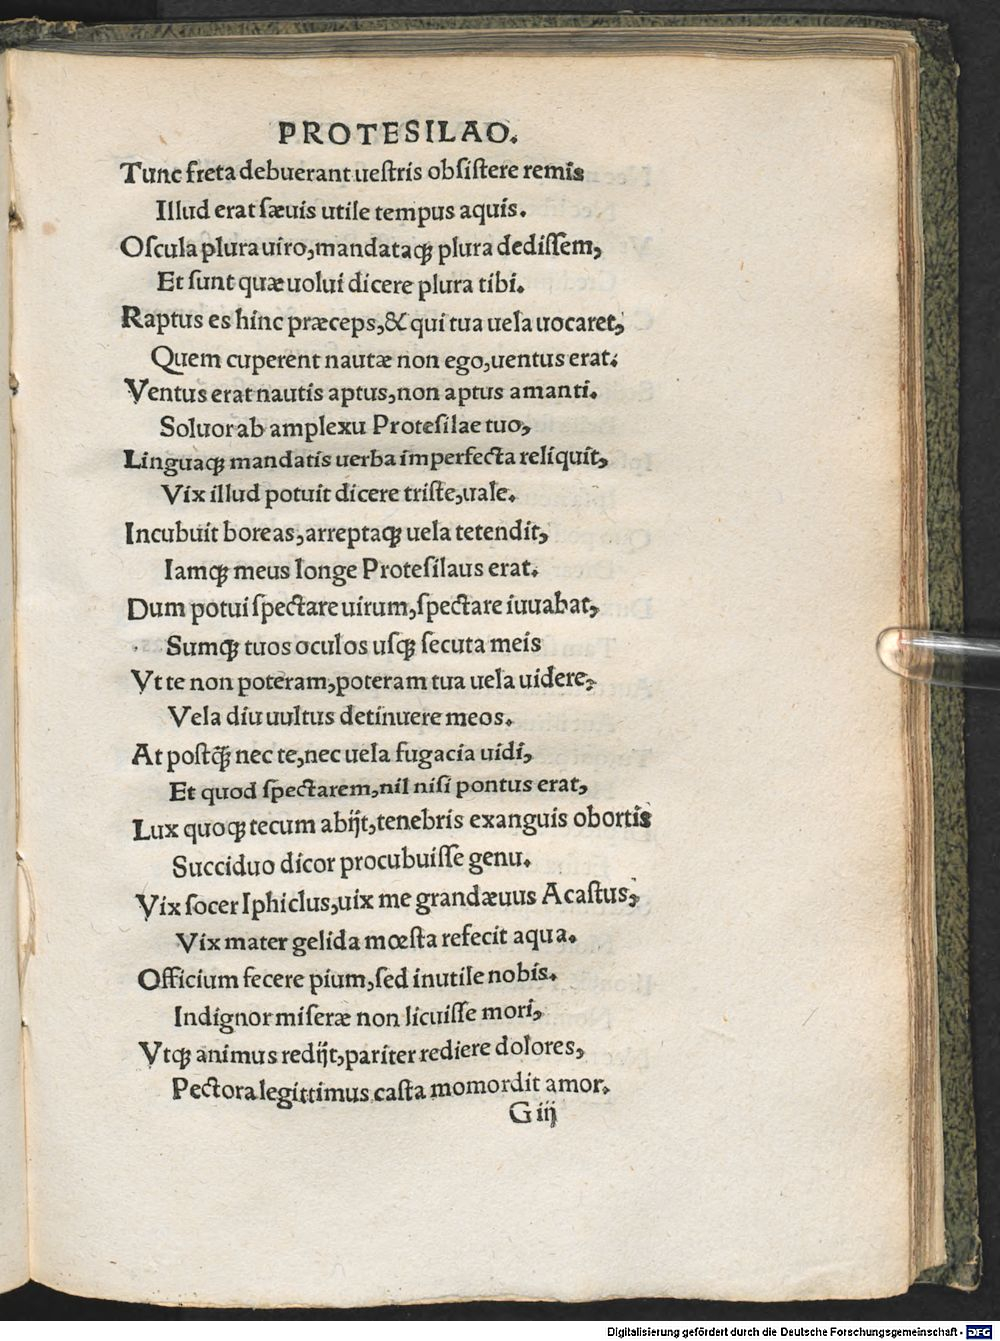 PROTESILAO.
Tunc freta debuerant uestris obsistere remis
Illud erat sæuis utile tempus aquis.
Oscula plura uiro,mandataqꝫ plura dedissem,
Et sunt quæ uolui dicere plura tibi.
Raptus es hinc præceps,& qui tua uela uocaret,
Quem cuperent nautæ non ego,uentus erat.
Ventus erat nautis aptus,non aptus amanti.
Soluor ab amplexu Protesilae tuo,
Linguaqꝫ mandatis uerba imperfecta reliquit,
Vix illud potuit dicere triste,uale.
Incubuit boreas,arreptaqꝫ uela tetendit,
Iamqꝫ meus longe Protesilaus erat.
Dum potui spectare uirum,spectare iuuabat,
Sumqꝫ tuos oculos usqꝫ secuta meis
Vt te non poteram,poteram tua uela uidere,
Vela diu uultus detinuere meos.
At postq̃ nec te,nec uela fugacia uidi,
Et quod spectarem,nil nisi pontus erat,
Lux quoqꝫ tecum abijt,tenebris exanguis obortis
Succiduo dicor procubuisse genu.
Vix socer Iphiclus,uix me grandæuus Acastus,
Vix mater gelida mœsta refecit aqua.
Officium fecere pium,sed inutile nobis.
Indignor miseræ non licuisse mori,
Vtqꝫ animus redijt,pariter rediere dolores,
Pectora legittimus casta momordit amor.
G iij
Digitalisierung gefördert durch die Deutsche Forschungsgemeinschaft - DFG